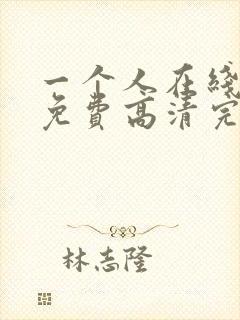 一个人在线
免费高清完
林志隆